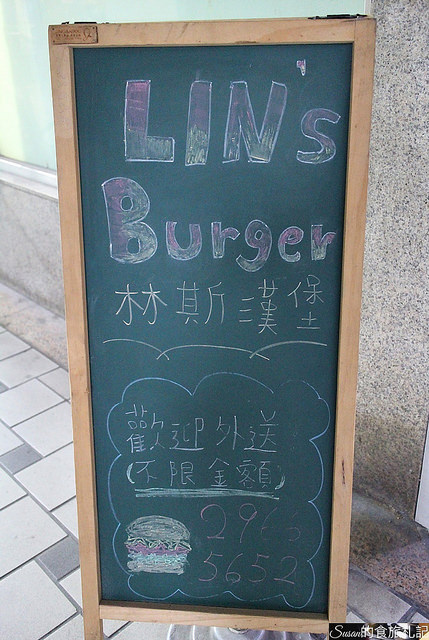 LIN's
Burger
林斯漢堡
歡迎外送
(不限金額)
5652
Susan的食旅札記